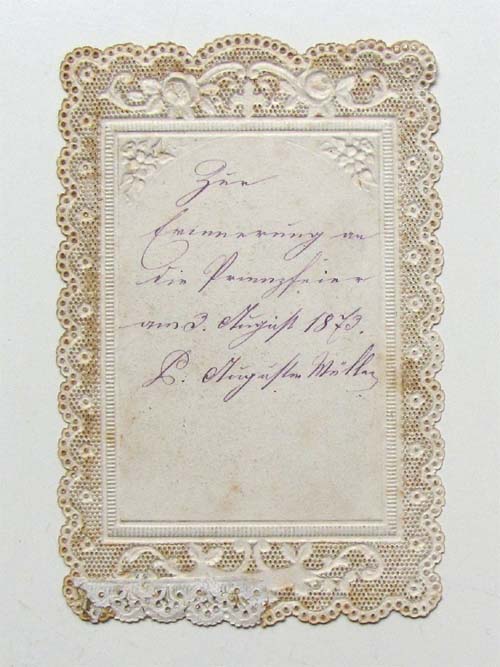 Zur
Erinnerung an
die Primizfeier
am 3. August 1873.
P. Augustin Müller